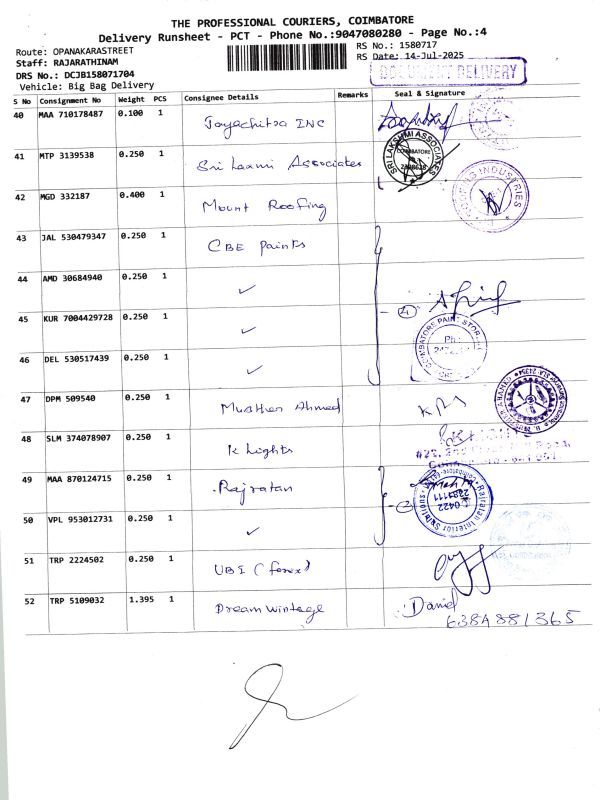 THE PROFESSIONAL COURIERS, COIMBATORE
Delivery Runsheet - PCT - Phone No.:9047080280 - Page No.:4
Route: OPANAKARASTREET RS No.: 1580717
Staff: RAJARATHINAM RS Date: 14-Jul-2025
DRS No.: DCJB158071704 DOCUMENT DELIVERY
Vehicle: Big Bag Delivery
S No Consignment No Weight PCS Consignee Details Remarks Seal & Signature
40 MAA 710178487 0.100 1 Jayachitra INC
41 MTP 3139538 0.250 1 Sri Laxmi Associates SRI LAKSHMI ASSOCIATES COIMBATORE
42 MGD 332187 0.400 1 Mount Roofing INDUSTRIES
43 JAL 530479347 0.250 1 CBE Paints
44 AMD 30684940 0.250 1 ✓
45 KUR 7004429728 0.250 1 ✓ 4
COIMBATORE PAINT Ph:
46 DEL 530517439 0.250 1 ✓
47 DPM 509540 0.250 1 Ahmed
48 SLM 374078907 0.250 1 K Lights
49 MAA 870124715 0.250 1 Rajratan Rajratan Interior 0422
50 VPL 953012731 0.250 1 ✓
51 TRP 2224502 0.250 1 UBI (forex)
52 TRP 5109032 1.395 1 Dream Wintage Daniel
6384881365